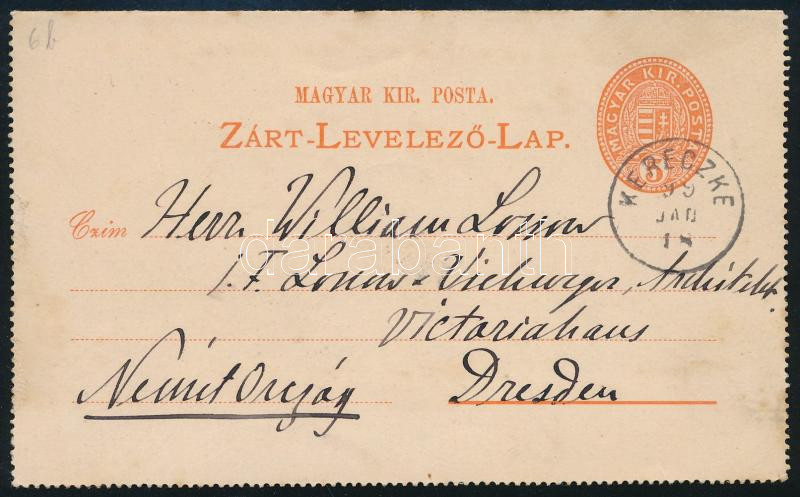 6 b
MAGYAR KIR. POSTA.
ZÁRT-LEVELEZŐ-LAP.
MAGYAR KIR. POSTA
5
KERECZKE
99
JAN
18
Czim Herrn William Lossow
i. F. Lossow & Viehweger, Architekt.
Victoriahaus
Német Ország Dresden
darabanth